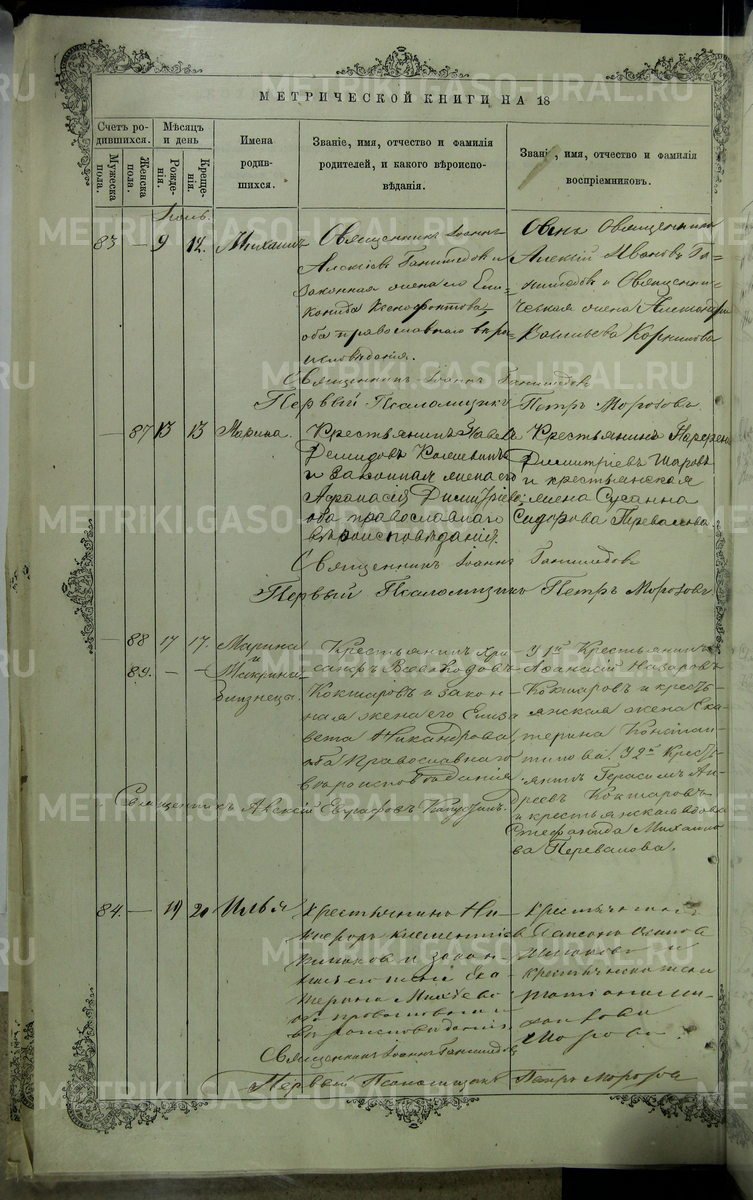 МЕТРИЧЕСКОЙ КНИГИ НА 18
Счетъ ро-
дившихся.
Мужеска
пола.
Женска
пола.
Мѣсяцъ
и день
Рожде-
нія.
Креще-
нія.
Имена
родив-
шихся.
Званіе, имя, отчество и фамилія
родителей, и какого вѣроиспо-
вѣданія.
Званіе, имя, отчество и фамилія
воспріемниковъ.
Іюль.
83 — 9 12. Михаилъ
Священникъ Іоаннъ
Алексіевъ Ганимедовъ и
законная жена его
Ксенофонтова
оба православнаго вѣро-
исповѣданія.
Сынъ Священника
Алексій Ивановъ Га-
нимедовъ и Священни-
ческая жена Александра
Васильева Корнилова
Священникъ Іоаннъ Ганимедовъ
Первый Псаломщикъ Петръ Морозовъ.
— 87 13 13 Марина.
Крестьянинъ Павелъ
Демидовъ
и законная жена его
Афанасія Димитріева
оба православнаго
вѣроисповѣданія.
Крестьянинъ
Димитріевъ Шаровъ
и крестьянская
жена Сусанна
Сидорова Перевалова
Священникъ Іоаннъ Ганимедовъ
Первый Псаломщикъ Петръ Морозовъ
— 88 17 17. Марина
и
89. — — Макрина
близнецы.
Крестьянинъ Хри-
санфъ Всеволодовъ
Кокшаровъ и закон-
ная жена его Елиза-
вета Никандрова,
оба Православнаго
вѣроисповѣданія
У 1й Крестьянинъ
Афанасій Назаровъ
Кокшаровъ и кресть-
янская жена Ека-
терина Констан-
тинова. У 2й Кресть-
янинъ Герасимъ Ан-
дреевъ Кокшаровъ
и крестьянская вдова
Стефанида Михайло-
ва Перевалова.
Священникъ Алексій Евграфовъ
84. — 19 20 Илья
Крестьянинъ Ни-
кифоръ Клементіевъ
и закон-
ная его жена Ека-
терина
оба православнаго
вѣроисповѣданія
Крестьянинъ
и
крестьянская жена
Священникъ Іоаннъ Ганимедовъ
Первый Псаломщикъ Петръ Морозовъ
METRIKI.GASO-URAL.RU